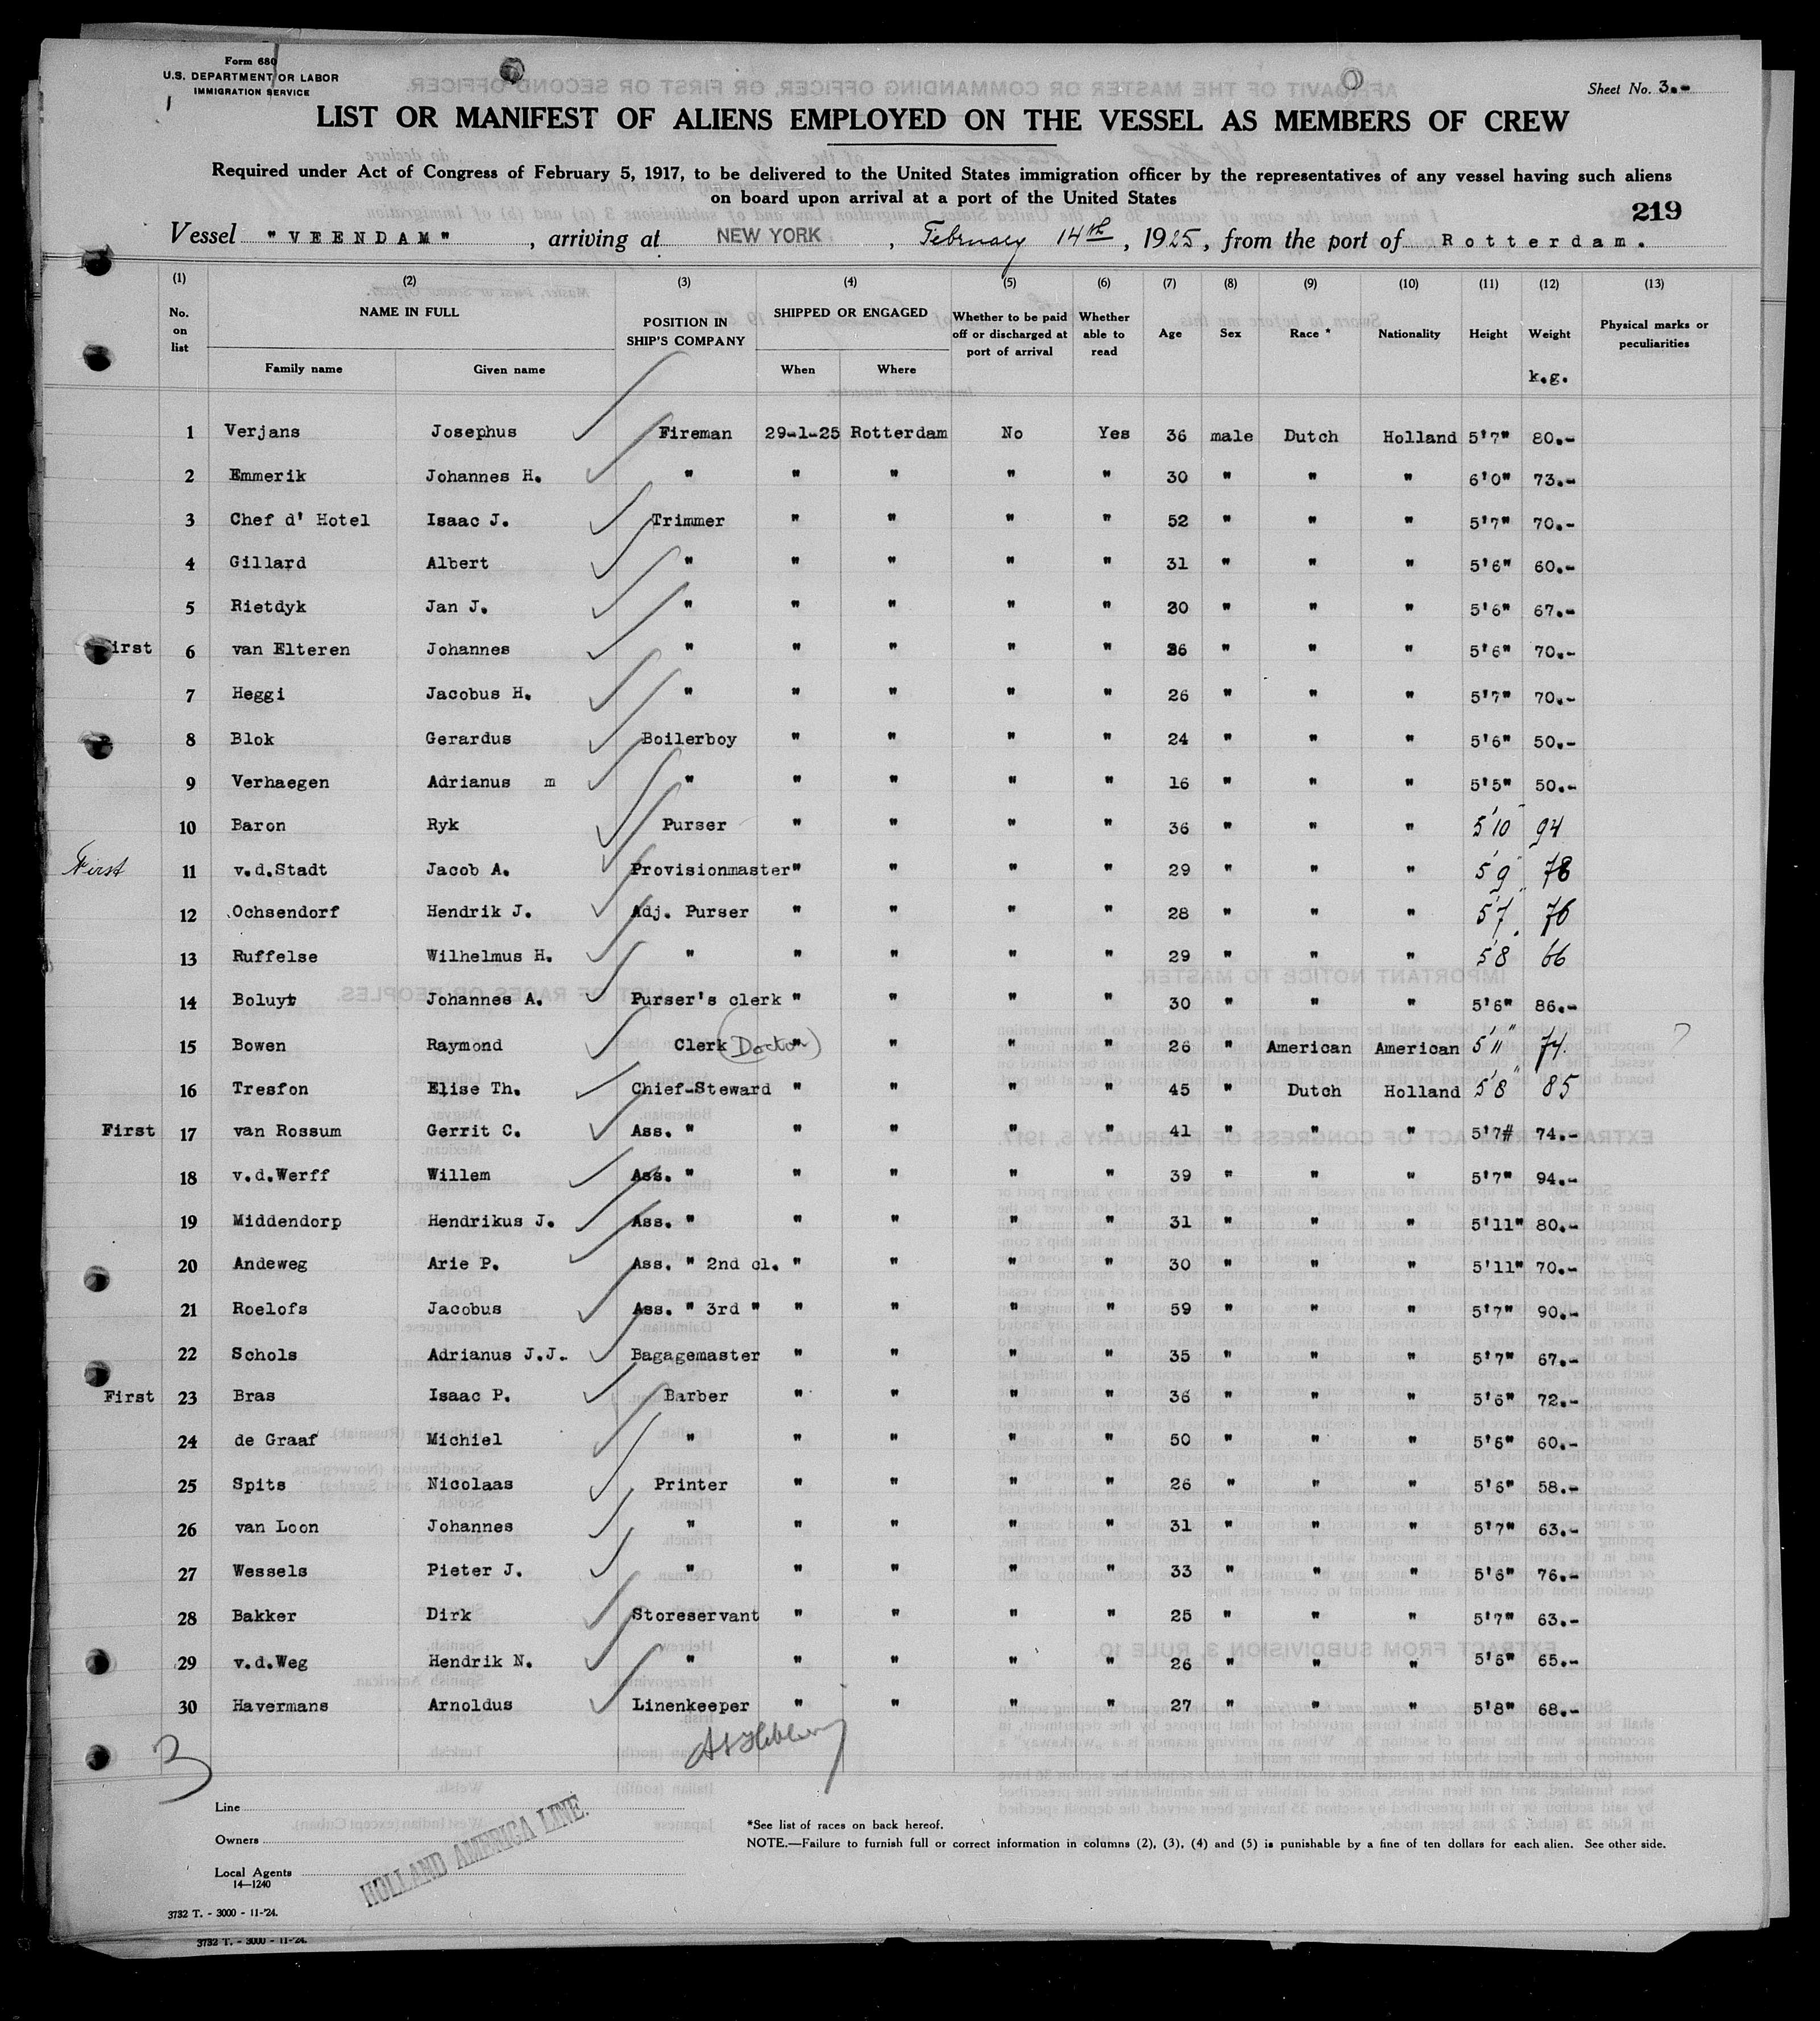 Form 680
U.S. DEPARTMENT OR LABOR
IMMIGRATION SERVICE
Sheet No. 3.-
LIST OR MANIFEST OF ALIENS EMPLOYED ON THE VESSEL AS MEMBERS OF CREW
Required under Act of Congress of February 5, 1917, to be delivered to the United States immigration officer by the representatives of any vessel having such aliens
on board upon arrival at a port of the United States
219
Vessel "VEENDAM", arriving at NEW YORK, February 14th, 1925, from the port of Rotterdam.
(1) (2) (3) (4) (5) (6) (7) (8) (9) (10) (11) (12) (13)
No. on list NAME IN FULL Family name Given name POSITION IN SHIP'S COMPANY SHIPPED OR ENGAGED When Where Whether to be paid off or discharged at port of arrival Whether able to read Age Sex Race * Nationality Height Weight k.g. Physical marks or peculiarities
1 Verjans Josephus Fireman 29-1-25 Rotterdam No Yes 36 male Dutch Holland 5'7" 80.-
2 Emmerik Johannes H. " " " " " 30 " " " 6'0" 73.-
3 Chef d' Hotel Isaac J. Trimmer " " " " 52 " " " 5'7" 70.-
4 Gillard Albert " " " " " 31 " " " 5'6" 60.-
5 Rietdyk Jan J. " " " " " 30 " " " 5'6" 67.-
First 6 van Elteren Johannes " " " " " 36 " " " 5'6" 70.-
7 Heggi Jacobus H. " " " " " 26 " " " 5'7" 70.-
8 Blok Gerardus Boilerboy " " " " 24 " " " 5'6" 50.-
9 Verhaegen Adrianus m " " " " " 16 " " " 5'5" 50.-
10 Baron Ryk Purser " " " " 36 " " " 5'10" 94
First 11 v.d.Stadt Jacob A. Provisionmaster " " " " 29 " " " 5'9" 78
12 Ochsendorf Hendrik J. Adj. Purser " " " " 28 " " " 5'7" 76
13 Ruffelse Wilhelmus H. " " " " " 29 " " " 5'8 66
14 Boluyt Johannes A. Purser's clerk " " " " 30 " " " 5'6" 86.-
15 Bowen Raymond Clerk (Doctor) " " " " 26 " American American 5'11" 74. ?
16 Tresfon Elise Th. Chief-Steward " " " " 45 " Dutch Holland 5'8" 85
First 17 van Rossum Gerrit C. Ass. " " " " " 41 " " " 5'7# 74.-
18 v.d.Werff Willem Ass. " " " " " 39 " " " 5'7" 94.-
19 Middendorp Hendrikus J. Ass. " " " " " 31 " " " 5'11" 80.-
20 Andeweg Arie P. Ass. " 2nd cl. " " " " 30 " " " 5'11" 70.-
21 Roelofs Jacobus Ass. " 3rd " " " " " 59 " " " 5'7" 90.-
22 Schols Adrianus J.J. Bagagemaster " " " " 35 " " " 5'7" 67.-
First 23 Bras Isaac P. Barber " " " " 36 " " " 5'6" 72.-
24 de Graaf Michiel " " " " " 50 " " " 5'6" 60.-
25 Spits Nicolaas Printer " " " " 26 " " " 5'6" 58.-
26 van Loon Johannes " " " " " 31 " " " 5'7" 63.-
27 Wessels Pieter J. " " " " " 33 " " " 5'6" 76.-
28 Bakker Dirk Storeservant " " " " 25 " " " 5'7" 63.-
29 v.d.Weg Hendrik N. " " " " " 26 " " " 5'6" 65.-
30 Havermans Arnoldus Linenkeeper " " " " 27 " " " 5'8" 68.-
3
Line
Owners
Local Agents
HOLLAND AMERICA LINE.
14—1240
*See list of races on back hereof.
NOTE.—Failure to furnish full or correct information in columns (2), (3), (4) and (5) is punishable by a fine of ten dollars for each alien. See other side.
3732 T. - 3000 - 11-'24.
3732 T. - 3000 - 11-'24.